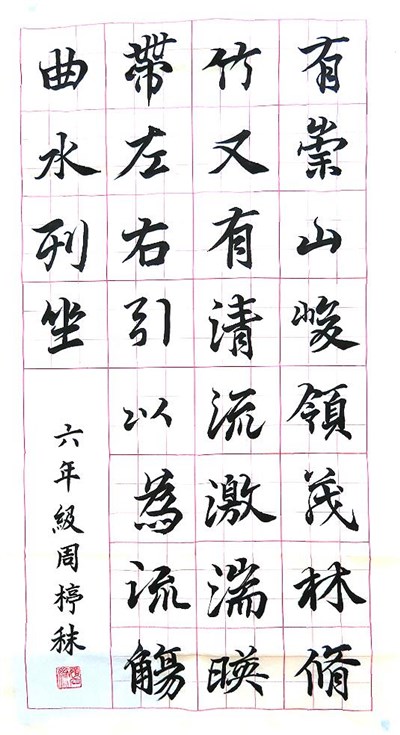 有崇山峻領茂林脩
竹又有清流激湍暎
帶左右引以為流觴
曲水列坐
六年級周楟秣